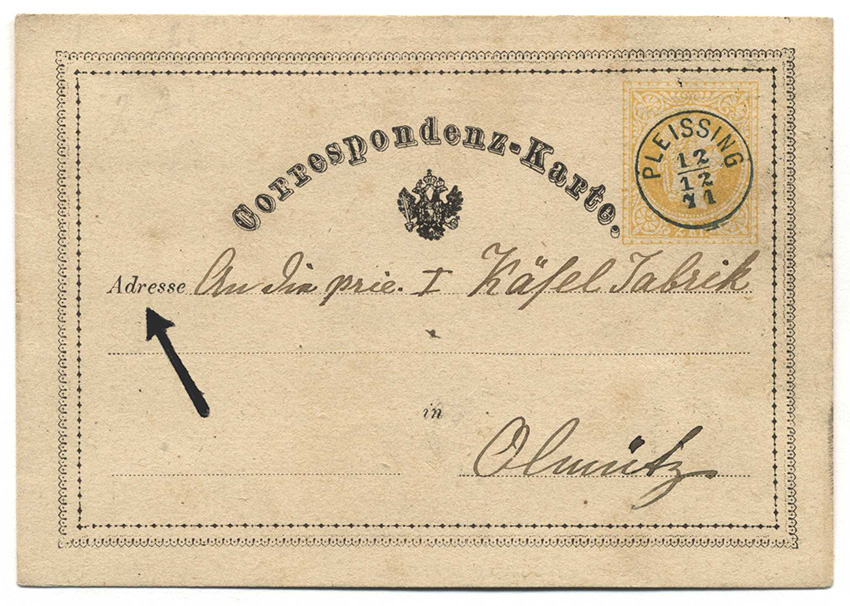 Correspondenz-Karte.
PLEISSING
12
12
71
Adresse An die priv. I Käsel Fabrik
in
Olmütz